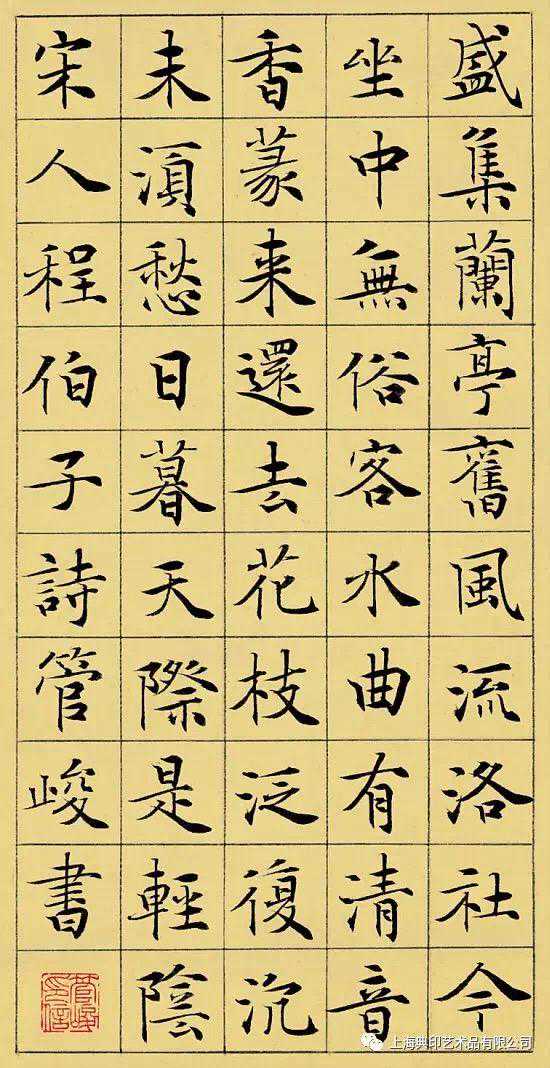 盛集蘭亭舊風流洛社今
坐中無俗客水曲有清音
香篆来還去花枝泛復沉
未湏愁日暮天際是輕陰
宋人程伯子詩管峻書
管峻之信
上海典印艺术品有限公司